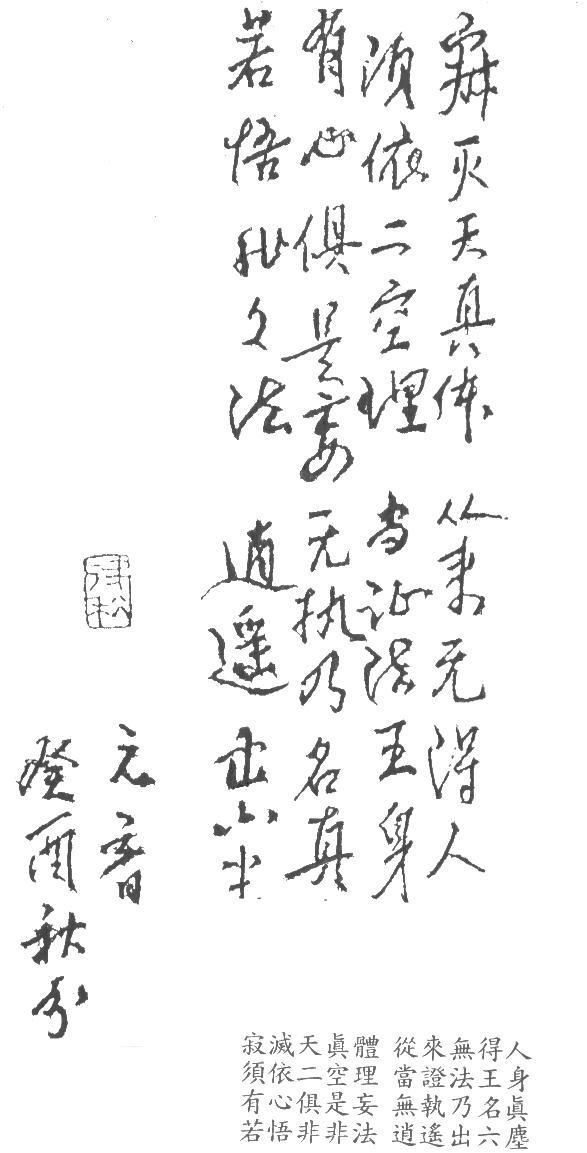 寂灭天真体 从来无得人
须依二空理 当证法王身
有心俱是妄 无执乃名真
若悟非文法 逍遥出六尘
元音
癸酉秋分
寂滅天眞體 從來無得人
須依二空理 當證法王身
有心俱是妄 無執乃名眞
若悟非非法 逍遙出六塵